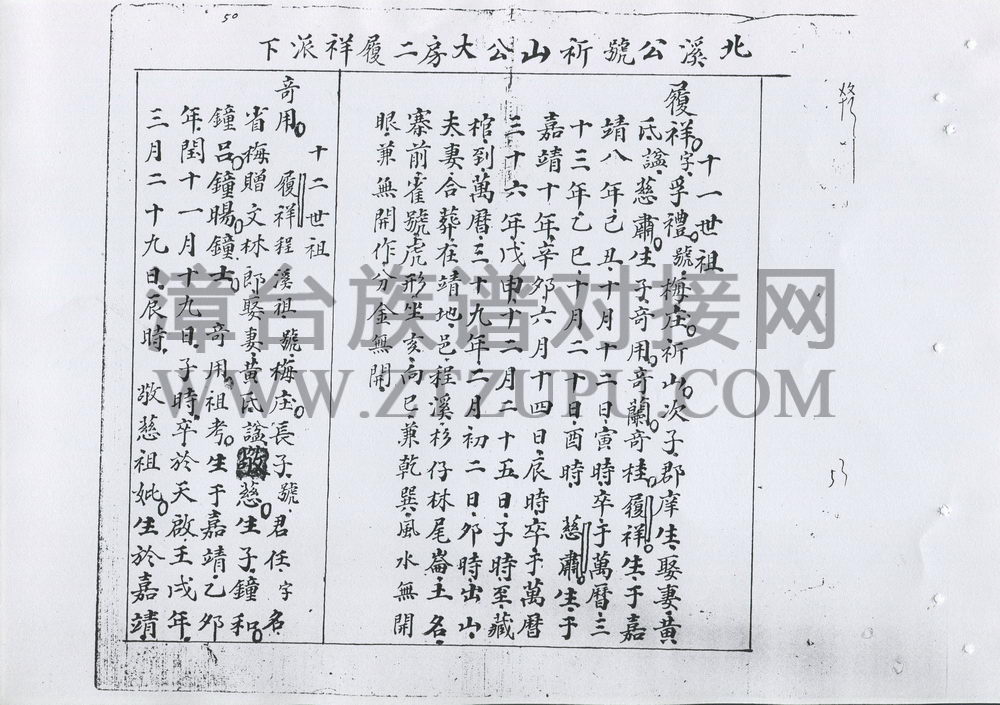 50
北溪公號祈山公大房二履祥派下
十一世祖
履祥字孚禮號梅庄祈山次子郡庠生娶妻黃
氏諡慈肅生子奇用奇蘭奇桂履祥生于嘉
靖八年己丑十月十二日寅時卒于萬曆三
十三年乙巳十月二十日酉時慈肅生于
嘉靖十年辛卯六月十四日辰時卒于萬曆
三十六年戊申十二月二十五日子時至藏
棺到萬曆三十九年二月初二日卯時出山
夫妻合葬在靖地邑程溪杉仔林尾崙土名
寨前雀號虎形坐亥向巳兼乾巽風水無開
眼兼無開作分金無開
十二世祖
奇用履祥程溪祖號梅庄長子號君任字名
省梅贈文林郎娶妻黃氏諡敬慈生子鐘和
鐘呂鐘暘鐘士奇用祖考生于嘉靖乙卯
年閏十一月十九日子時卒於天啟壬戌年
三月二十九日辰時敬慈祖妣生於嘉靖
53
漳台族谱对接网
WWW.ZTZUPU.COM